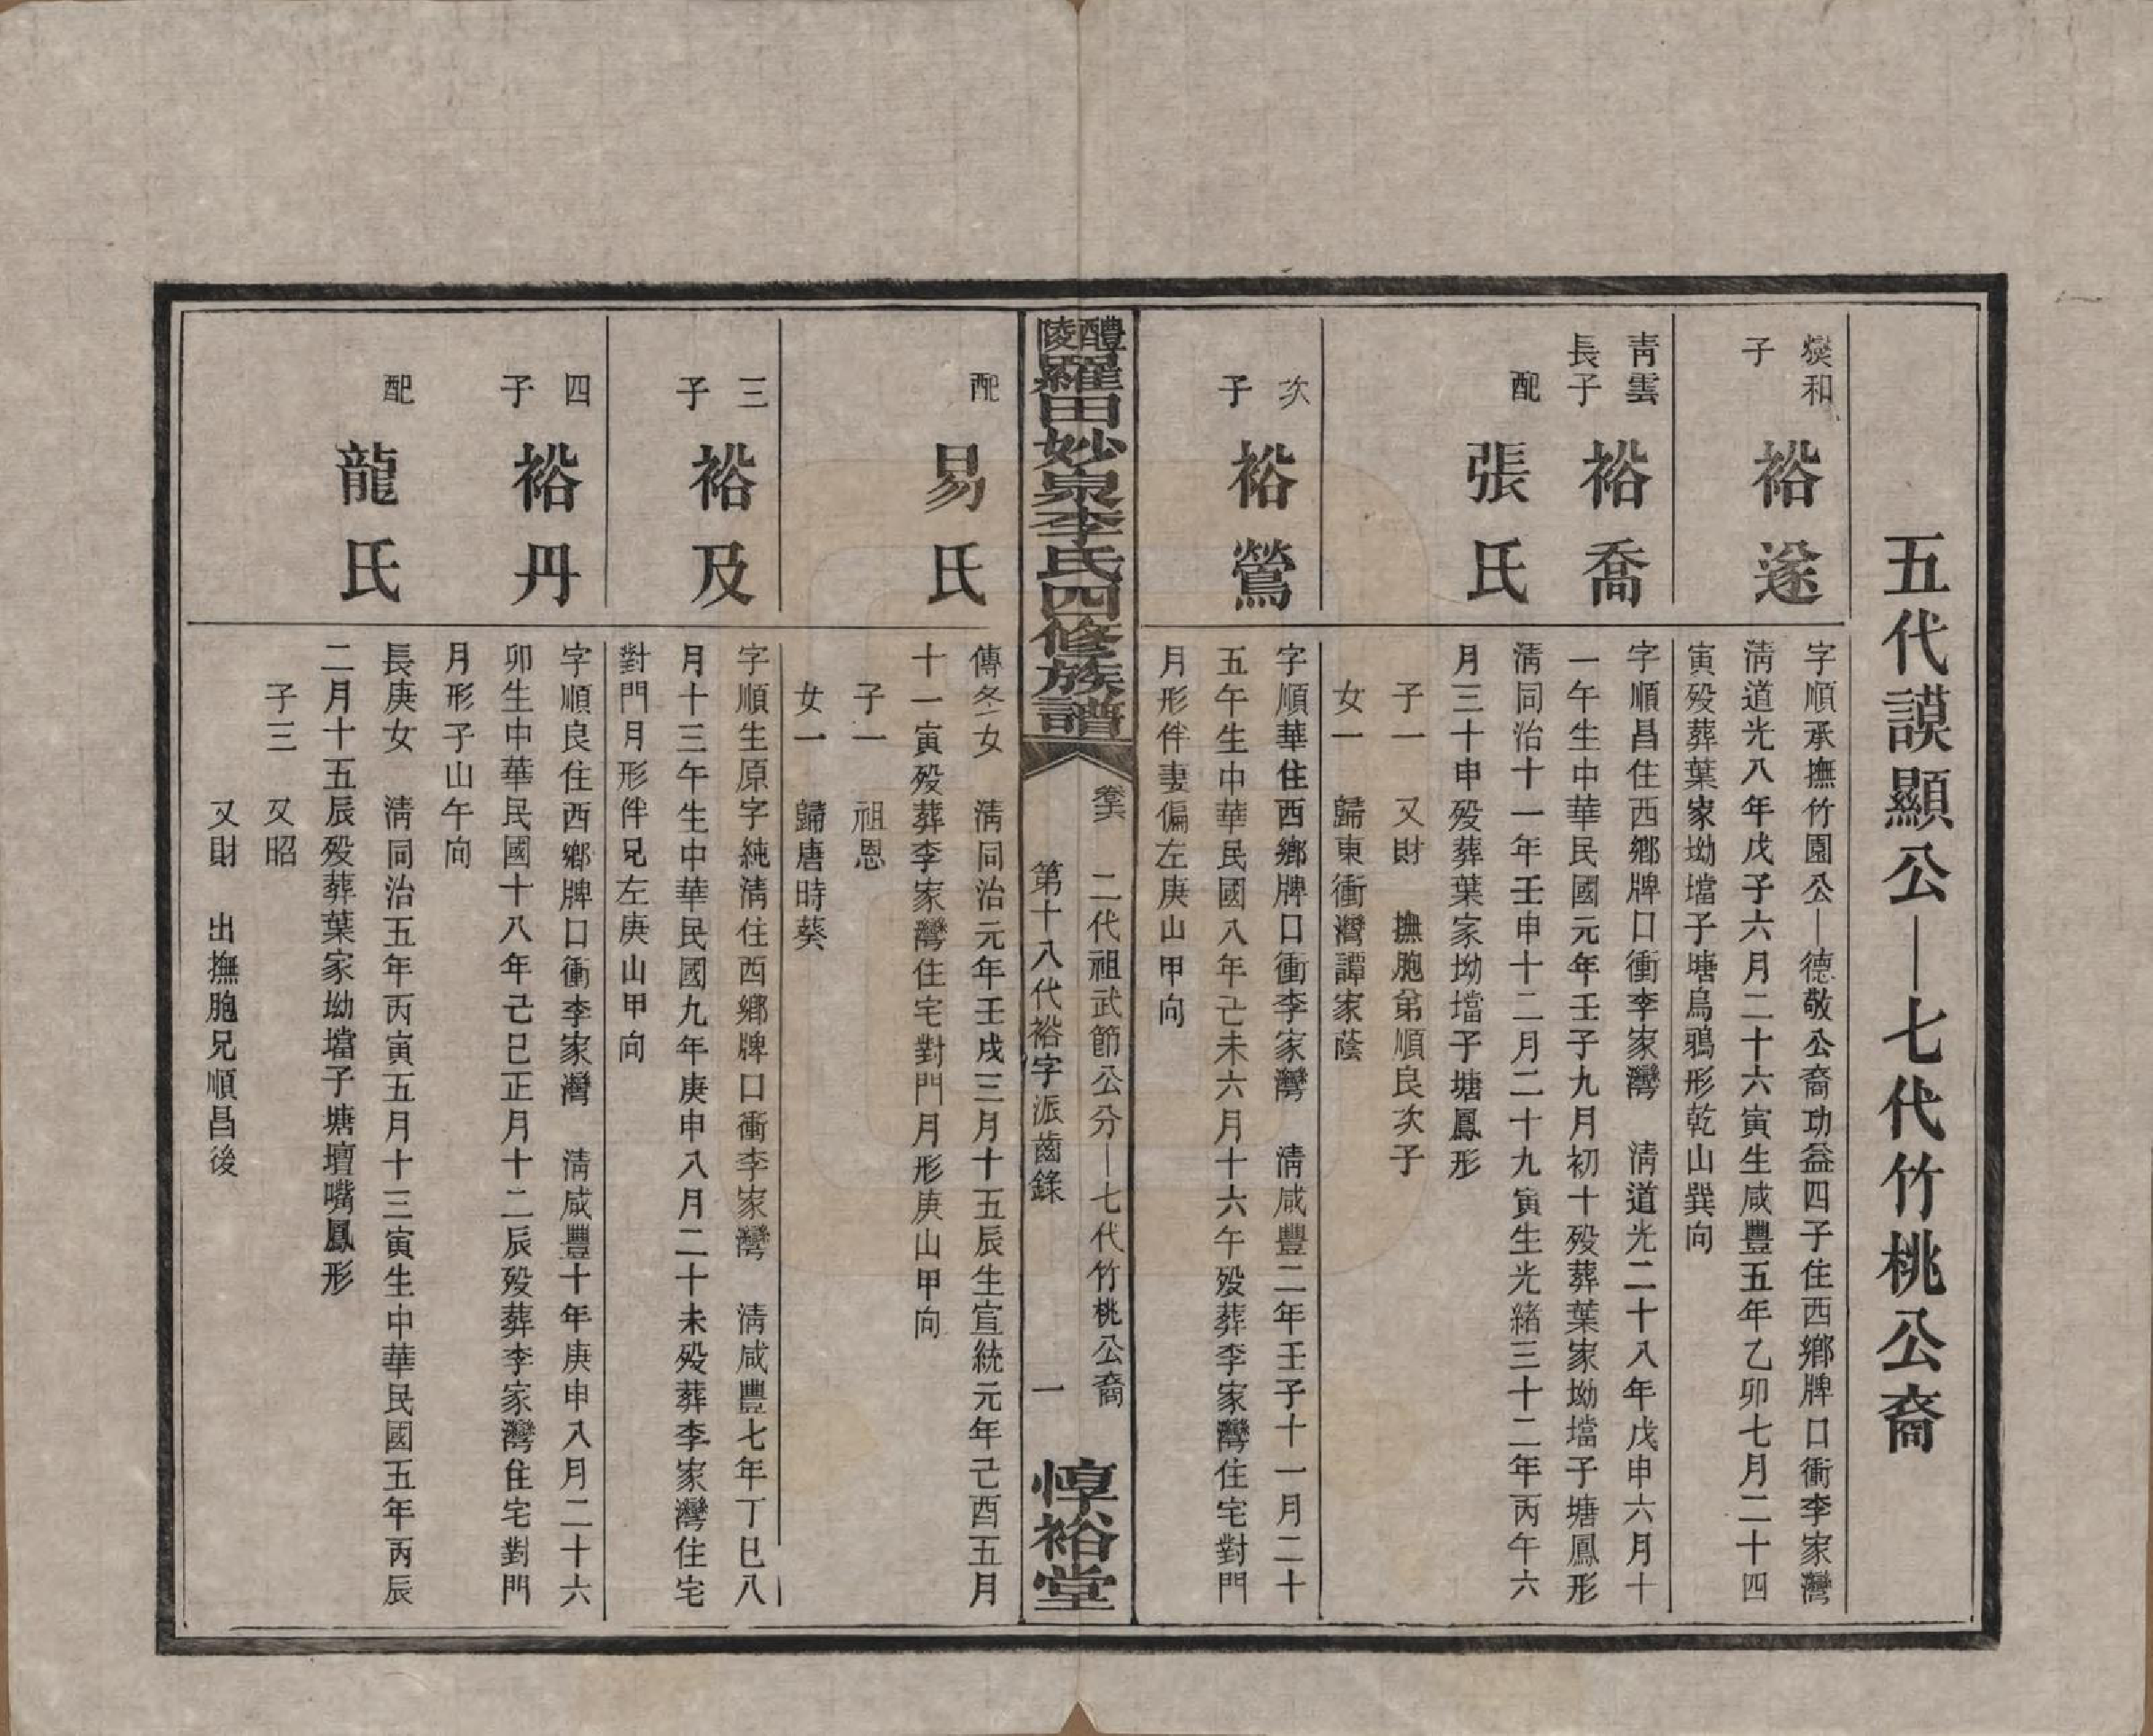 五代謨顯公—七代竹桃公裔
爕和
子
裕遂
字順承撫竹園公—德敬公裔功益四子住西鄉牌口衝李家灣
淸道光八年戊子六月二十六寅生咸豐五年乙卯七月二十四
寅歿葬葉家坳壋子塘烏鴉形乾山巽向
靑雲
長子
裕喬
字順昌住西鄉牌口衝李家灣 淸道光二十八年戊申六月十
一午生中華民國元年壬子九月初十歿葬葉家坳壋子塘鳳形
配
張氏
淸同治十一年壬申十二月二十九寅生光緒三十二年丙午六
月三十申歿葬葉家坳壋子塘鳳形
子一 又財 撫胞弟順良次子
女一 歸東衝灣譚家蔭
次
子
裕鶯
字順華住西鄉牌口衝李家灣 淸咸豐二年壬子十一月二十
五午生中華民國八年己未六月十六午歿葬李家灣住宅對門
月形伴妻偏左庚山甲向
醴陵羅田妙泉李氏四修族譜
卷六 二代祖武節公分—七代竹桃公裔
第十八代裕字派齒錄 一
惇裕堂
配
易氏
傳冬女 淸同治元年壬戌三月十五辰生宣統元年己酉五月
十一寅歿葬李家灣住宅對門月形庚山甲向
子一 祖恩
女一 歸唐時葵
三
子
裕及
字順生原字純淸住西鄉牌口衝李家灣 淸咸豐七年丁巳八
月十三午生中華民國九年庚申八月二十未歿葬李家灣住宅
對門月形伴兄左庚山甲向
四
子
裕丹
字順良住西鄉牌口衝李家灣 淸咸豐十年庚申八月二十六
卯生中華民國十八年己巳正月十二辰歿葬李家灣住宅對門
月形子山午向
配
龍氏
長庚女 淸同治五年丙寅五月十三寅生中華民國五年丙辰
二月十五辰歿葬葉家坳壋子塘壇嘴鳳形
子三 又昭
又財 出撫胞兄順昌後